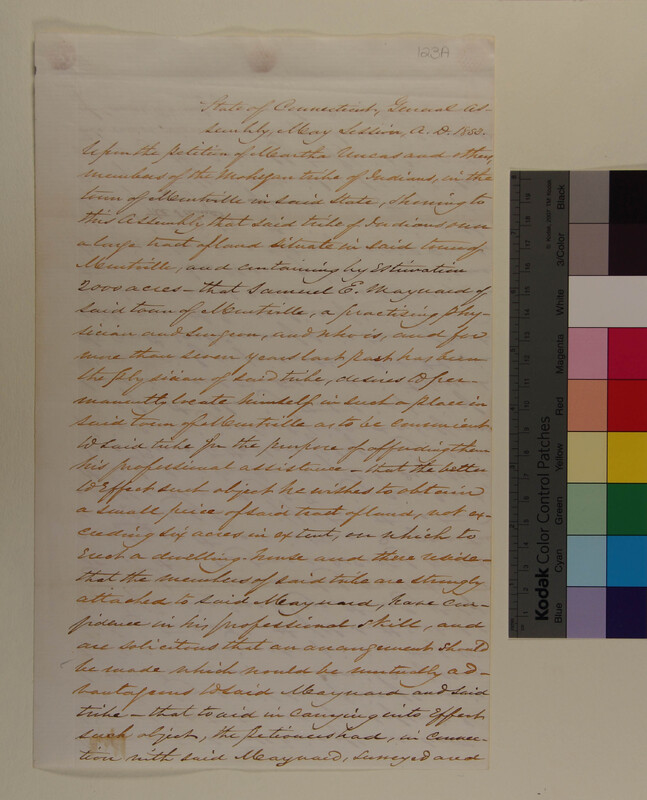 123A
State of Connecticut, General As-
sembly, May Session, A.D. 1853.
Upon the petition of Martha Uncas and others,
members of the Mohegan tribe of Indians, in the
town of Montville in said State, showing to
this Assembly that said tribe of Indians own
a large tract of land situate in said town of
Montville, and containing by Estimation
2000 acres – that Samuel E. Maynard of
said town of Montville, a practising phy-
sician and surgeon, and who is, and for
more than seven years last past has been
the physician of said tribe, desires to per-
manently locate himself in such a place in
said town of Montville as to be convenient
to said tribe for the purpose of affording them
his professional assistance – that the better
to Effect such object he wishes to obtain
a small piece of said tract of land, not ex-
ceeding six acres in extent, on which to
Erect a dwelling-house and there reside –
that the members of said tribe are strongly
attached to said Maynard, have con-
fidence in his professional skill, and
are solicitous that an arrangement should
be made which would be mutually ad-
vantageous to said Maynard and said
tribe – that to aid in carrying into Effect
such object, the petitioners had, in connec-
tion with said Maynard, surveyed and
Kodak Color Control Patches
Blue
Cyan
Green
Yellow
Red
Magenta
White
3/Color
Black